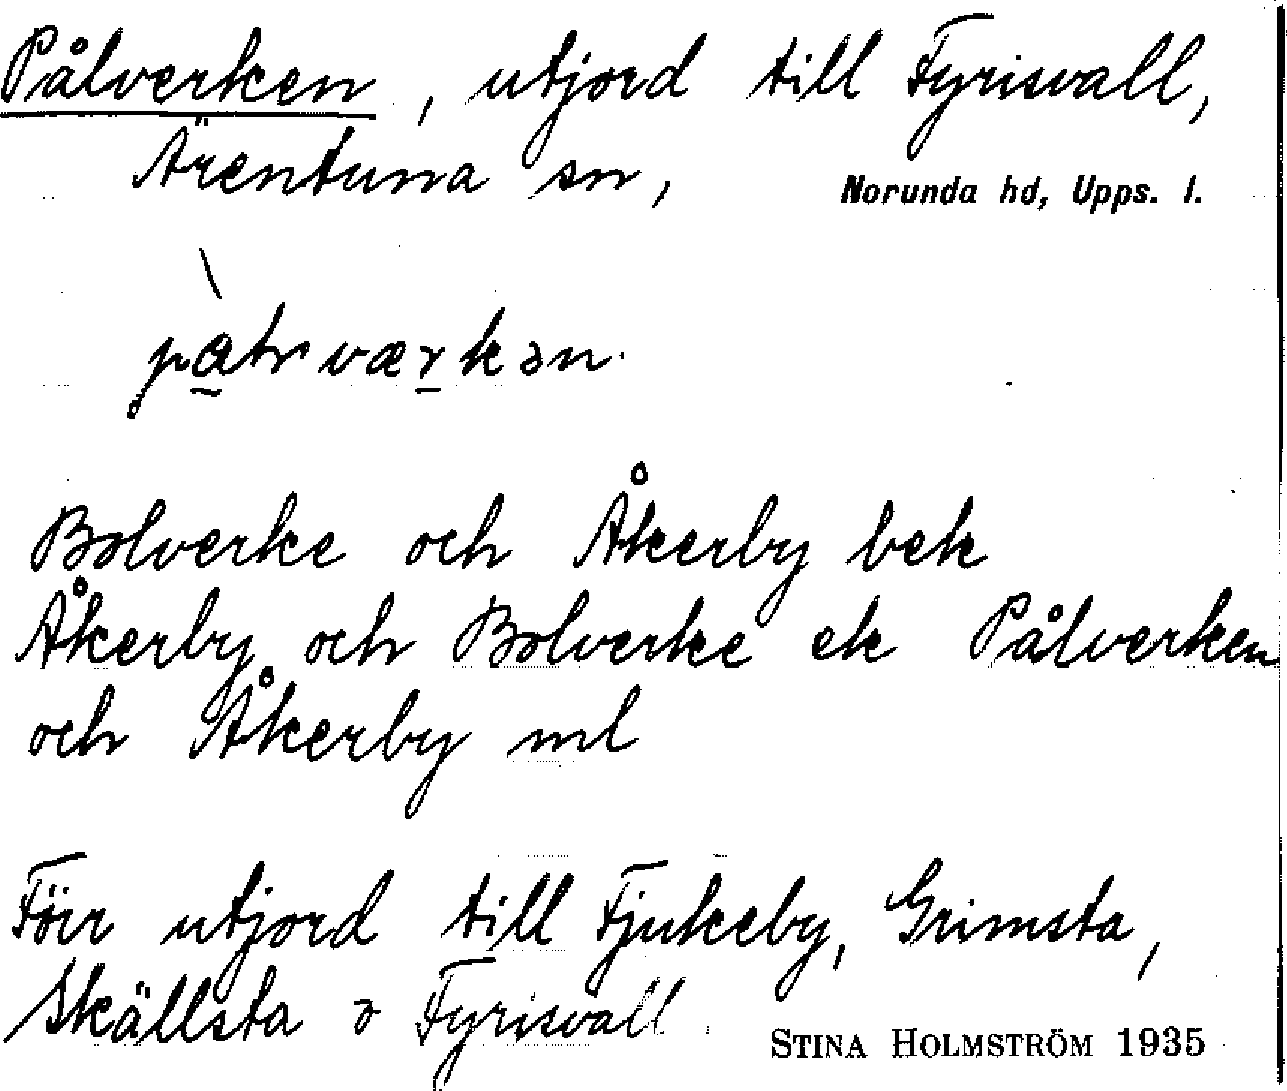 Pålverken, utjord till Fyrisvall,
Ärentuna sn, Norunda hd, Upps. l.
Bolverke och Åkerby bek
Åkerby och Bolverke ek Pålverken
och Åkerby ml
Förr utjord till Fjukeby, Grimsta,
Skällsta o Fyrisvall.
STINA HOLMSTRÖM 1935